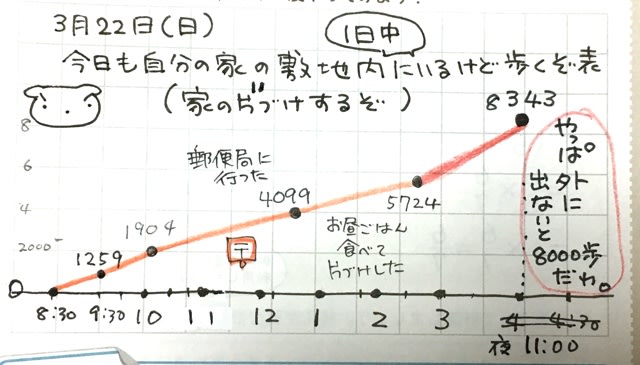 3月22日(日)
1日中
今日も自分の家の敷地内にいるけど歩くぞ表
(家の片づけするぞ)
8343
8
6
4
2000
0
郵便局に
行った
〒
お昼ごはん
食べて
片づけした
1259
1904
4099
5724
やっぱ。
外に
出ないと
8000歩
だわ。
8:30 9:30 10 11 12 1 2 3 4 4:30
夜 11:00